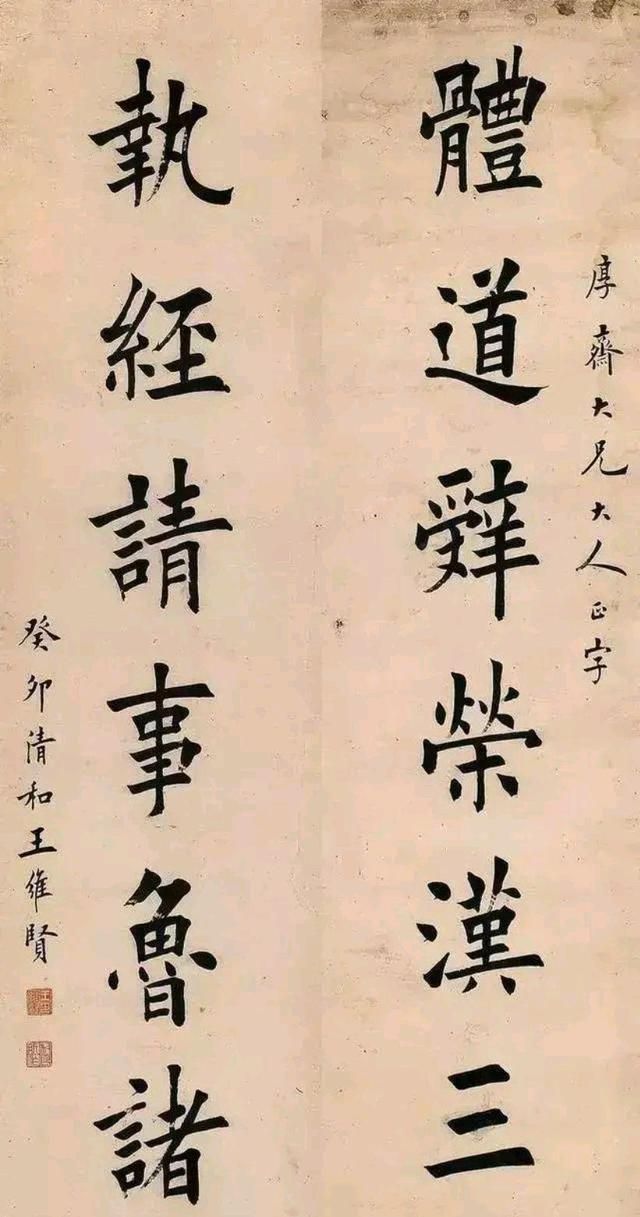 厚齋大兄大人正字
體道辤榮漢三
執經請事魯諸
癸卯清和王維賢